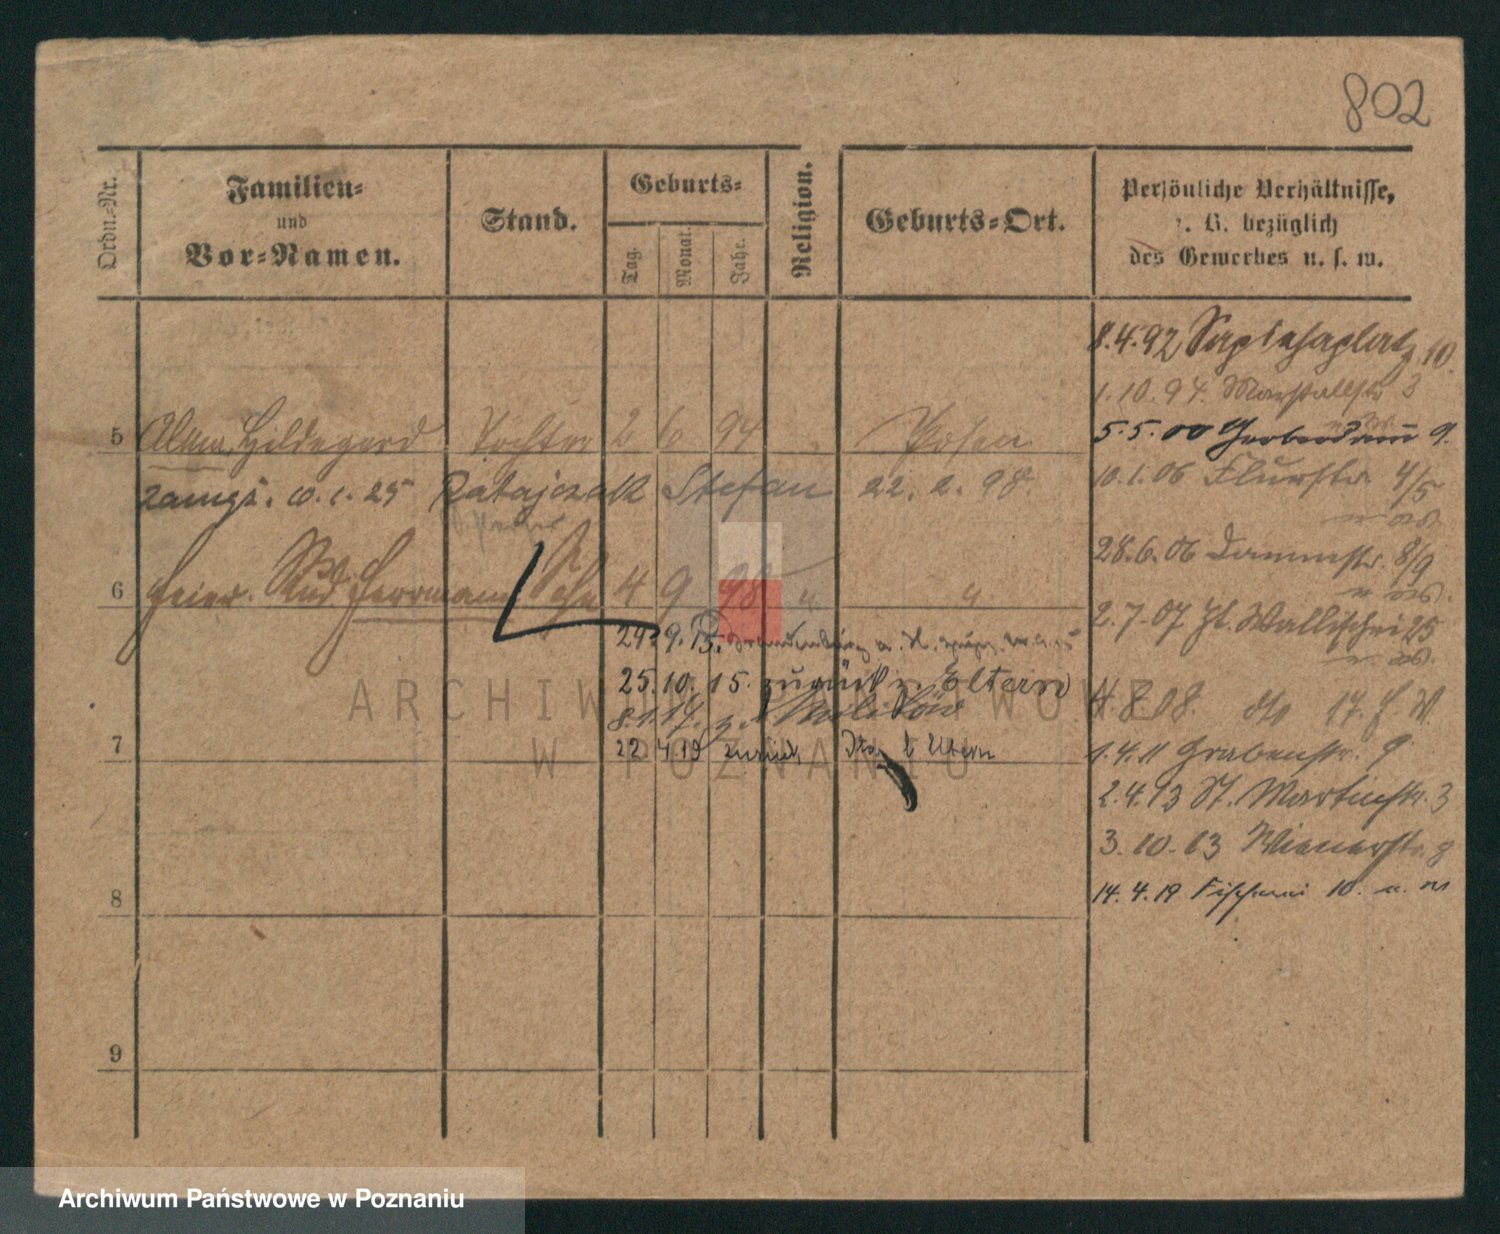 802
Ordn.-Nr.
Familien-
und
Vor-Namen.
Stand.
Geburts-
Tag.
Monat.
Jahr.
Religion.
Geburts-Ort.
Persönliche Verhältnisse,
z. B. bezüglich
des Gewerbes u. s. w.
8.4.92 Sapiehaplatz 10
1.10.94. Marstallstr 3
5 Alma Hildegard Tochter 2 6 94 Posen
5.5.00 Gerberdamm 9.
zamęż. 10.1.25 Ratajczak Stefan 22.2.98.
10.1.06 Flurstr. 4/5
28.6.06 Dammstr. 8/9
6 Rud Herrmann Sohn 4 9 98 " "
2.7.07 Wallischei 25
29.9.15. Brandenburg a. H.
25.10.15. zurück z. Eltern
8.1.17. z.
4.8.08. dto 17.
7 22.4.19 zurück b Eltern
1.4.11 Grabenstr. 9
2.4.13 St. Martinstr. 3
3.10.13 Wienerstr. 8
8
14.4.19 Fischerei 10.
9
ARCHIWUM PAŃSTWOWE
W POZNANIU
Archiwum Państwowe w Poznaniu